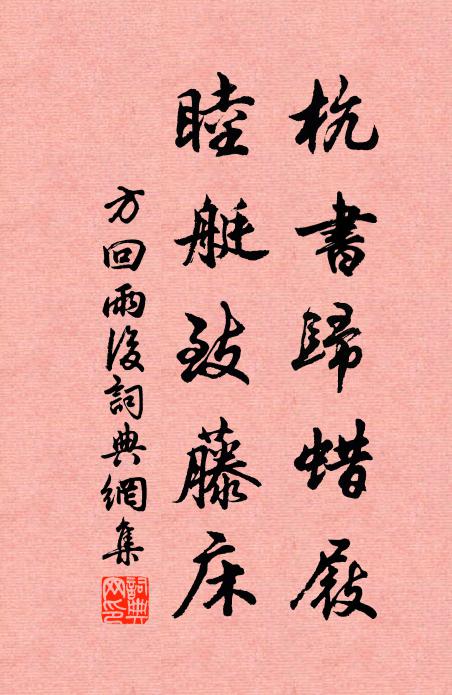 杭書歸蜡屐
睦艇致藤床
方回雨後詞典網集
詞典網印